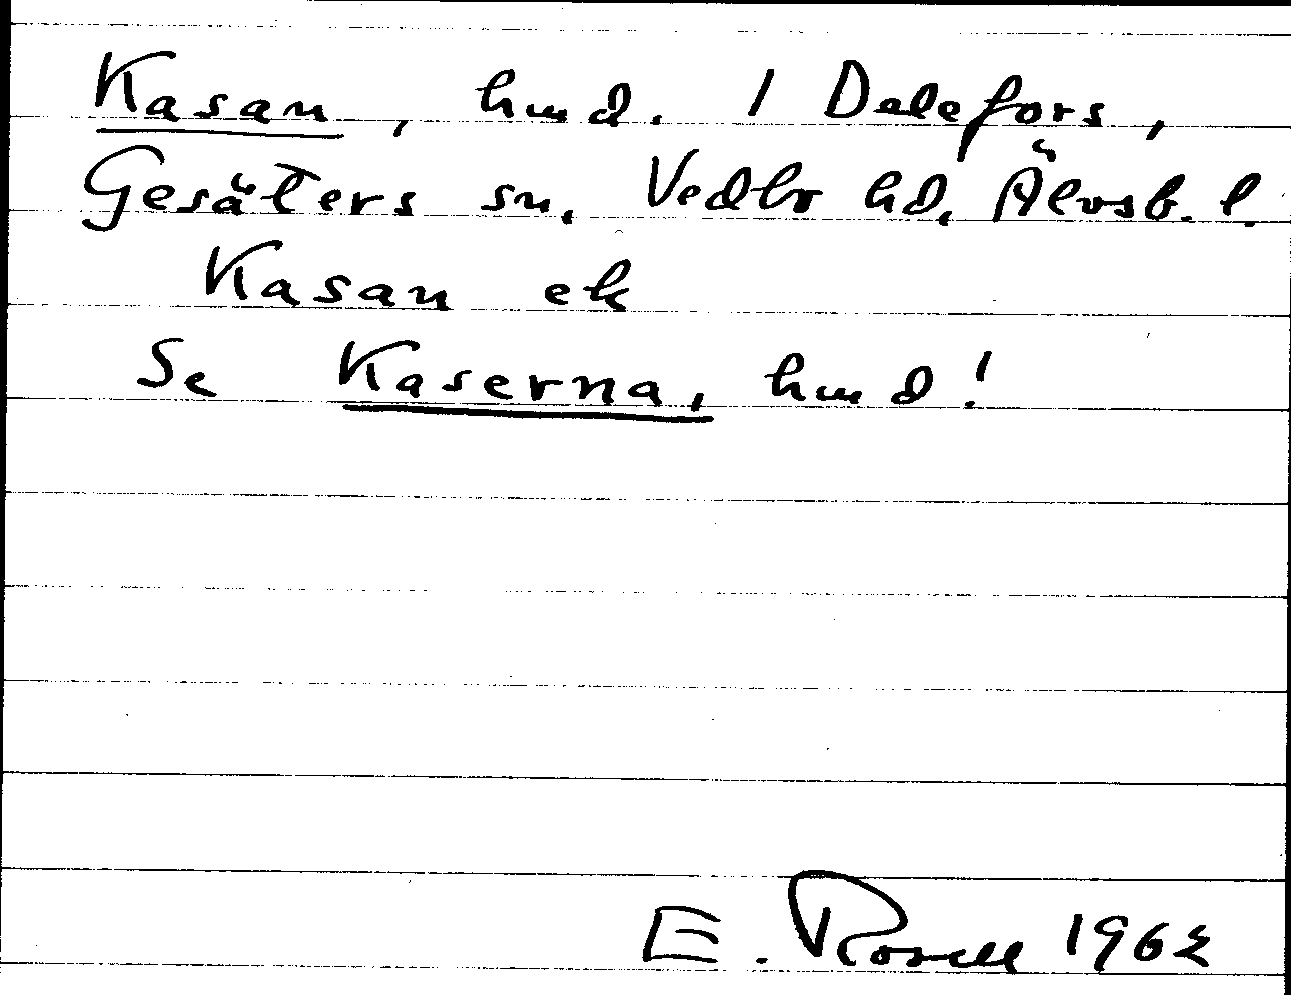 Kasan, hmd. 1 Dalefors,
Gesäters sn. Vedbo hd. Älvsb. l.
Kasan ek
Se Kaserna, hmd!
E. Rosell 1962